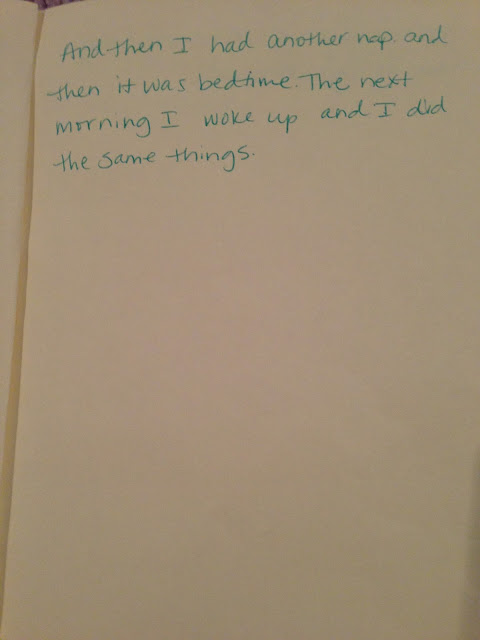 And then I had another nap. and
then it was bedtime. The next
morning I woke up and I did
the same things.